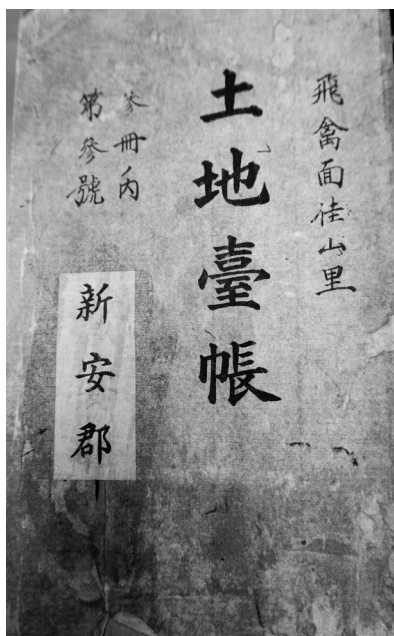 飛禽面佳山里
土地臺帳
参冊內
第参號
新安郡